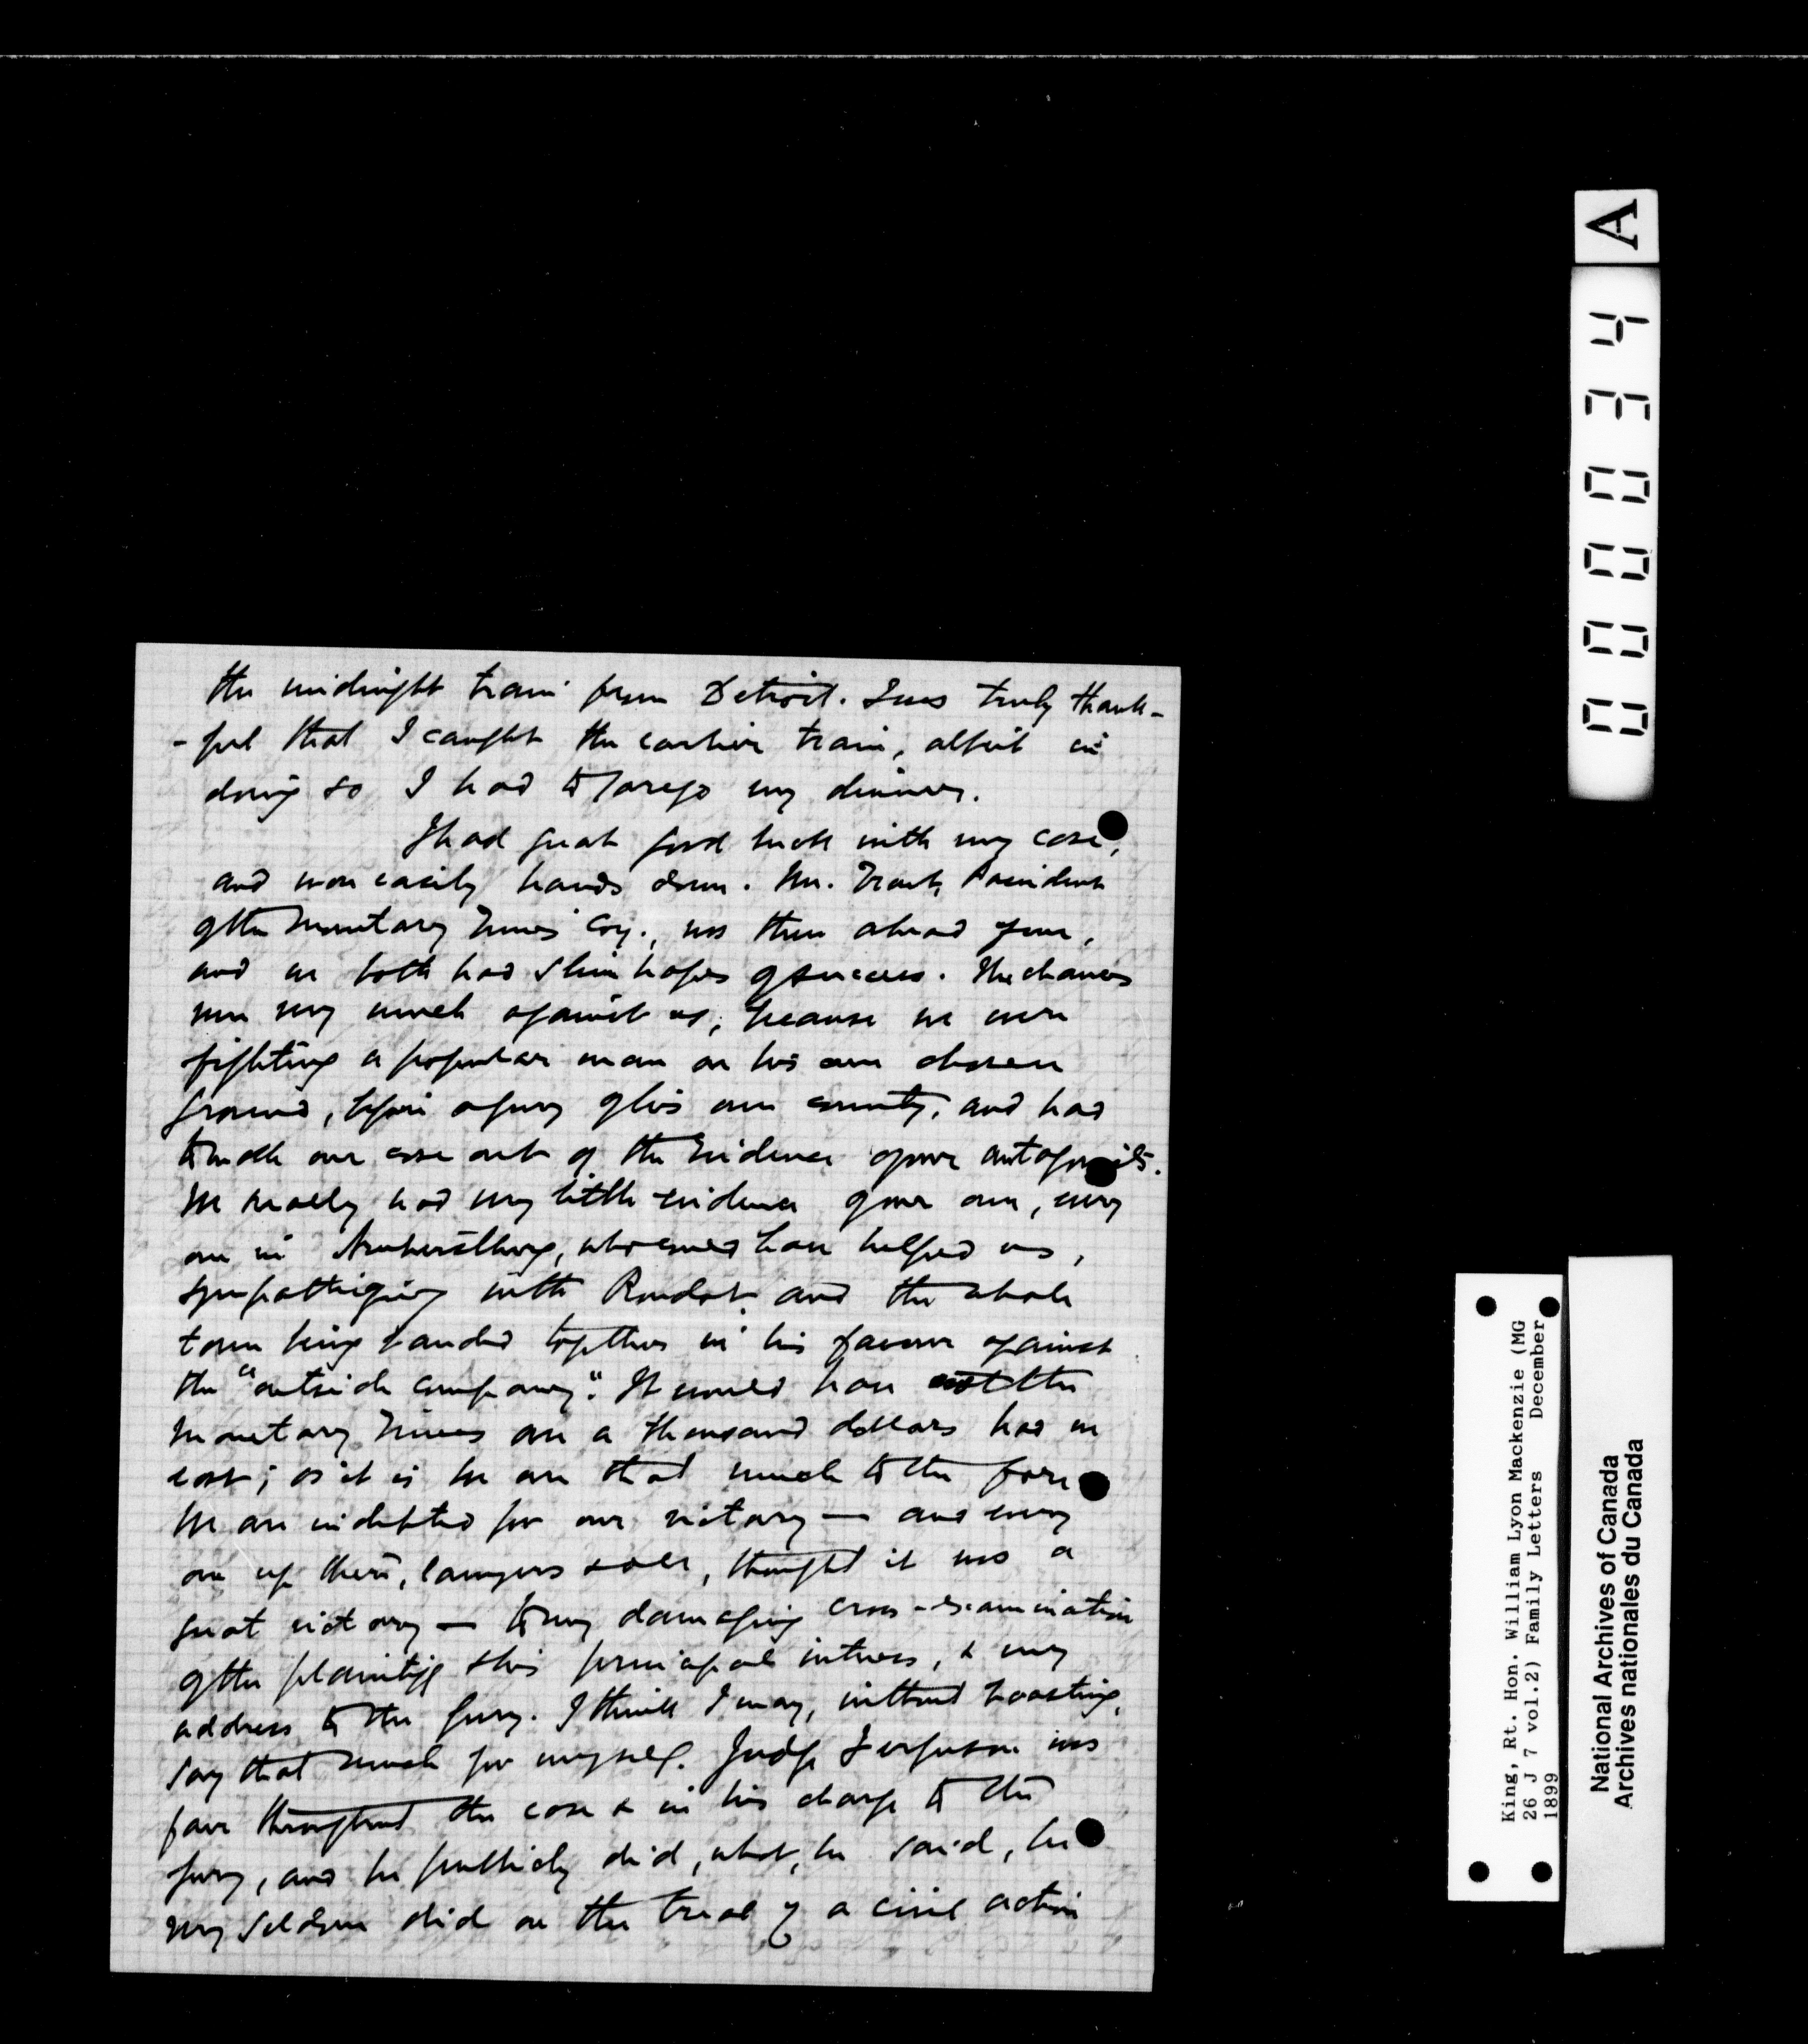 the midnight train from Detroit. I was truly thank-
-ful that I caught the earlier train, albeit in
doing so I had to forego my dinner.
I had great good luck with my case,
and won easily hands down. Mr. Trout, President
of the Monetary Times Coy., was there ahead of me,
and we both had slim hopes of success. The chances
were very much against us, because we were
fighting a popular man on his own chosen
ground, before a jury of his own county, and had
to make our case out of the evidence of our antagonists.
We really had very little evidence of our own, every
one in Amherstburg, who could have helped us,
sympathizing with Roudot and the whole
town being banded together in his favour against
the "outside company". It would have cost the
Monetary Times over a thousand dollars had we
lost; as it is we are that much to the fore.
We are indebted for our victory — and every
one up there, lawyers & all, thought it was a
great victory — to my damaging cross-examination
of the plaintiff & his principal witness, & my
address to the jury. I think I may, without boasting,
say that much for myself. Judge Ferguson was
fair throughout the case & in his charge to the
jury, and he publicly did, what, he said, he
very seldom did on the trial of a civil action
A
000034
King, Rt. Hon. William Lyon Mackenzie (MG
26 J 7 vol.2) Family Letters December
1899
National Archives of Canada
Archives nationales du Canada